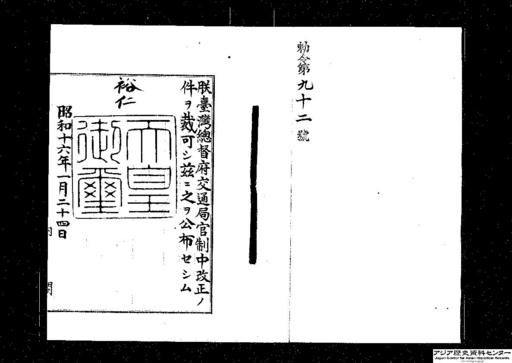 勅令第九十二號
朕臺灣總督府交通局官制中改正ノ
件ヲ裁可シ茲ニ之ヲ公布セシム
裕仁
天皇
御璽
昭和十六年一月二十四日
内閣
アジア歴史資料センター
Japan Center for Asian Historical Records